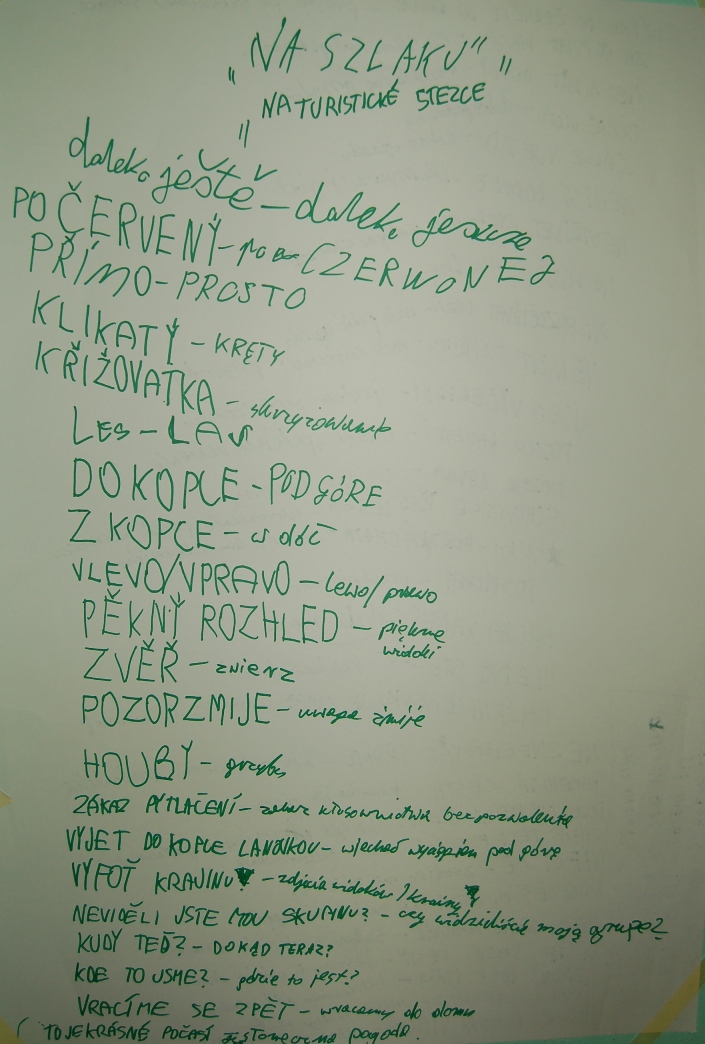 „NA SZLAKU” "
NA TURISTICKÉ STEZCE
"
daleko ještě – daleko jeszcze
PO ČERVENÝ – po CZERWONEJ
PŘÍMO – PROSTO
KLIKATÝ – KRĘTY
KŘIŽOVATKA – skrzyżowanie
LES – LAS
DO KOPCE – POD GÓRE
Z KOPCE – w dół
VLEVO/VPRAVO – lewo/prawo
PĚKNÝ ROZHLED – piękne
widoki
ZVĚŘ – zwierz
POZOR ZMIJE – uwaga żmije
HOUBY – grzyby
ZÁKAZ PYTLAČENÍ – zakaz kłusownictwa bez pozwolenia
VYJET DO KOPCE LANOVKOU – wjechać wyciągiem pod górę
VYFOŤ KRAJINU – zdjęcia widoków / krainy
NEVIDĚLI JSTE MOU SKUPINU? – czy widzieliście moją grupę?
KUDY TEĎ? – DOKĄD TERAZ?
KDE TO JSME? – gdzie to jest?
VRACÍME SE ZPĚT – wracamy do domu
( TO JE KRÁSNÉ POČASÍ pogoda.